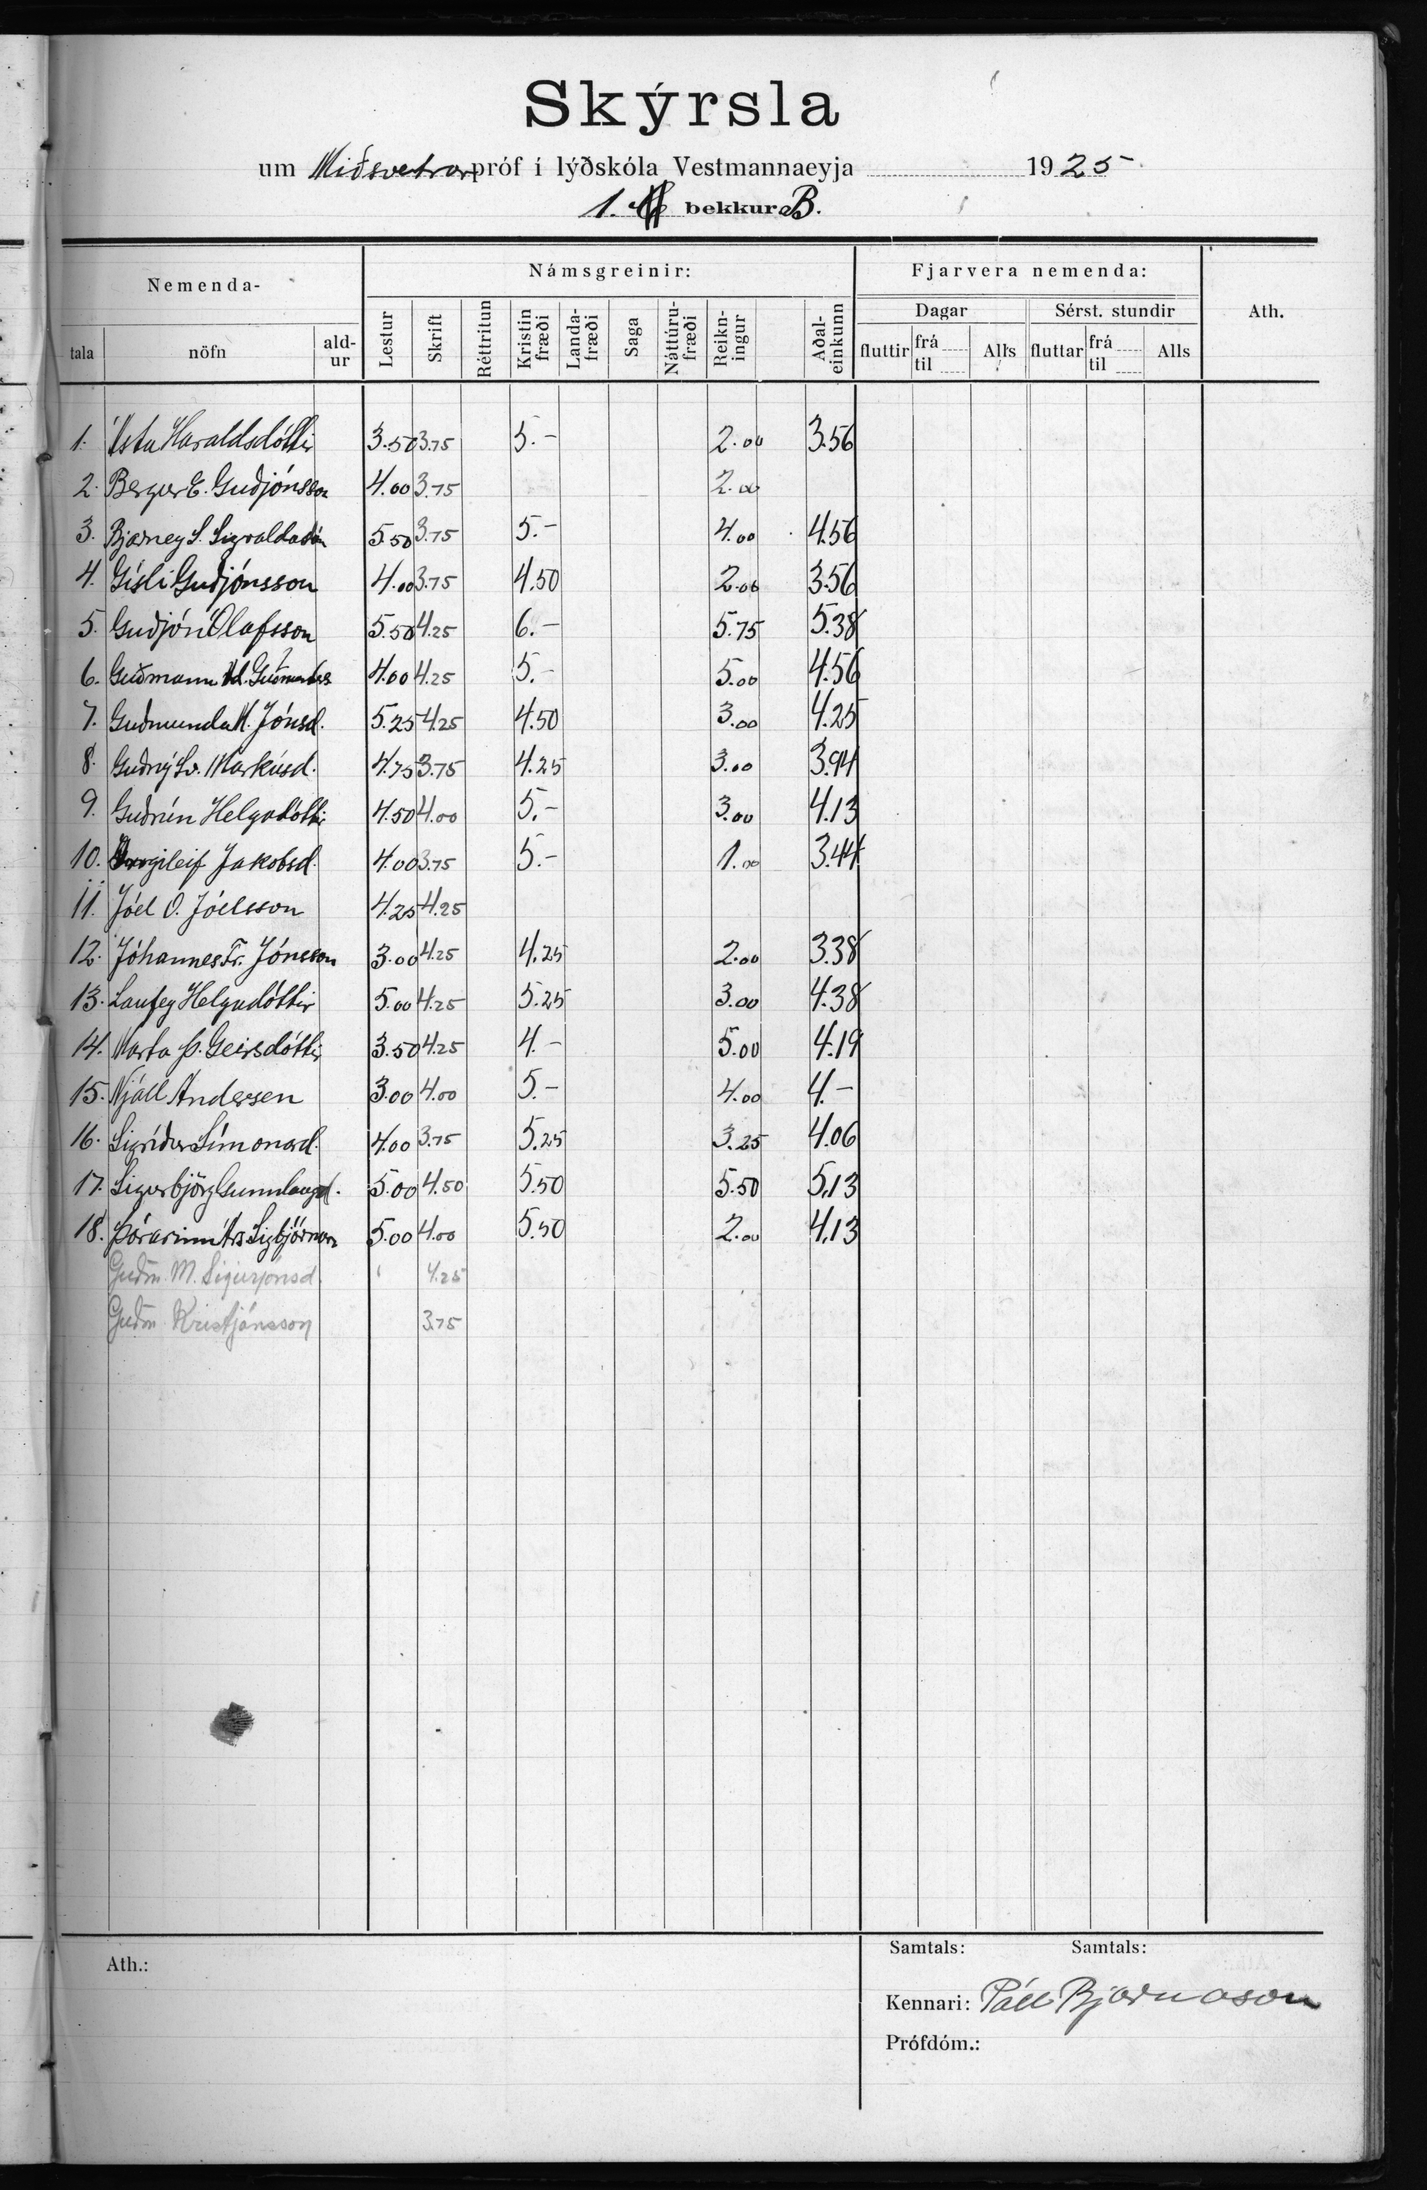 Skýrsla
um Miðsvetrarpróf í lýðskóla Vestmannaeyja 1925
1. bekkur B.
Nemenda- Námsgreinir: Fjarvera nemenda: Ath.
Dagar Sérst. stundir
tala nöfn ald-ur Lestur Skrift Réttritun Kristin fræði Landa-fræði Saga Náttúru-fræði Reikn-ingur Aðal-einkunn fluttir frá til Alls fluttar frá til Alls
1. Ásta Haraldsdóttir 3.50 3.75 5.- 2.00 3.56
2. Bergur E. Guðjónsson 4.00 3.75 2.00
3. Bjarney S. Sigvaldadón 5.50 3.75 5.- 4.00 4.56
4. Gísli Guðjónsson 4.00 3.75 4.50 2.00 3.56
5. Guðjón Ólafsson 5.50 4.25 6.- 5.75 5.38
6. Guðmann 4.00 4.25 5.- 5.00 4.56
7. Guðmunda M. Jónsd. 5.25 4.25 4.50 3.00 4.25
8. Guðný Sv. Markúsd. 4.75 3.75 4.25 3.00 3.94
9. Guðrún Helgadóttir 4.50 4.00 5.- 3.00 4.13
10. Jakobsd. 4.00 3.75 5.- 1.00 3.44
11. Jóel O. Jóelsson 4.25 4.25
12. Jóhannes Fr. Jónsson 3.00 4.25 4.25 2.00 3.38
13. Laufey Helgadóttir 5.00 4.25 5.25 3.00 4.38
14. Marta Þ. Geirsdóttir 3.50 4.25 4.- 5.00 4.19
15. Njáll Andersen 3.00 4.00 5.- 4.00 4.-
16. Sigríður Símonard. 4.00 3.75 5.25 3.25 4.06
17. Sigurbjörg Gunnlaugsd. 5.00 4.50 5.50 5.50 5,13
18. Þórarinn Árs Sigbjörnss 5.00 4.00 5.50 2.00 4,13
Guðm. M. Sigurjónsd. 4.25
Guðm Kristjánsson 3.75
Samtals: Samtals:
Ath.:
Kennari: Páll Bjarnason
Prófdóm.: